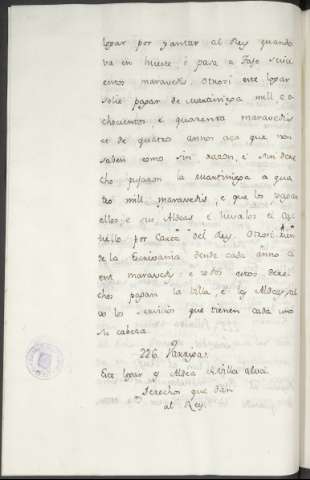 logar por yantar al Rey quando
va en hueste, o pasa a Tafe seis
cientos maravedis Otrosi este logar
solie pagar de Martiniega mill e o-
chocientos e quarenta maravedis
et de quatro annos aca que non
saben como sin razon, e sin dere
cho pusieron la Martiniega a qua
tro mill maravedis, e que los
ellos, e sus Aldeas e
por Carta del Rey. Otrosi
de la Escribania dende cada anno
ent maravedis e todos estos dere
chos pagan la Villa, e las Aldeas, sal
vo los servicios que tienen cada uno
su cabeza.
226.
Este logar es Aldea de Villa
Derechos que dan
al Rey.